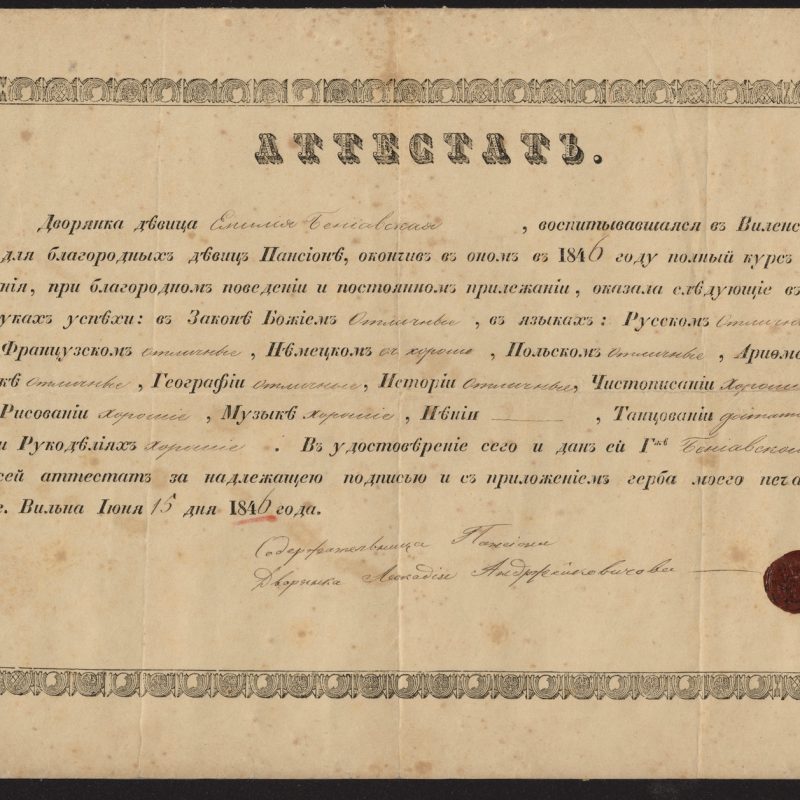 АТТЕСТАТЪ.
Дворянка дѣвица Емилия Бенiавская , воспитывавшаяся въ Виленс
для благородныхъ дѣвиц Пансіонѣ, окончив въ оном въ 1846 году полный курс
нія, при благородном поведеніи и постоянном прилежаніи, оказала слѣдующіе въ
укахъ успѣхи: въ Законѣ Божіемъ отличные , въ языкахъ: Русскомъ отличн
Французскомъ отличные , Нѣмецкомъ хорошие , Польскомъ отличные , Ариѳм
кѣ отличные , Географіи отличные, Исторіи отличные, Чистописаніи хорош
Рисованіи хорошіе , Музыкѣ хорошіе , Пѣніи ——— , Танцованіи достат
и Рукодѣліяхъ хорошіе . Въ удостовѣреніе сего и данъ ей Г-жѣ Бенiавской
сей аттестатъ за надлежащею подписью и съ приложеніемъ герба моего печа
г. Вильна Іюня 15 дня 1846 года.
Содержательница Пансіона
Дворянка Леокадія Андржейковичова